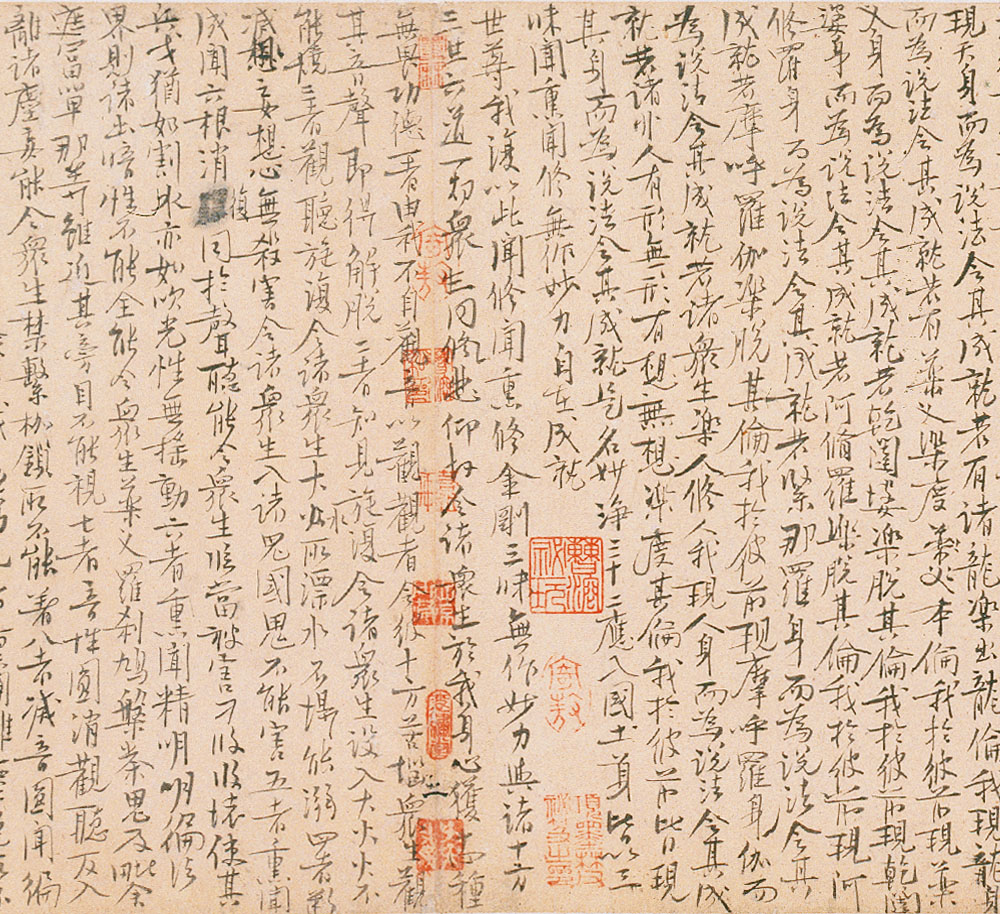 現天身而為說法令其成就若有諸龍樂出龍倫我現龍身
而為說法令其成就若有藥叉樂度本倫我於彼前現藥
叉身而為說法令其成就若乾闥婆樂脫其倫我於彼前現乾闥
婆身而為說法令其成就若阿脩羅樂脫其倫我於彼前現阿
修羅身而為說法令其成就若緊那羅身而為說法令其
成就若摩呼羅伽樂脫其倫我於彼前現摩呼羅身伽而
為說法令其成就若諸眾生樂人修人我現人身而為說法令其成
就若諸非人有形無形有想無想樂度其倫我於彼前皆現
其身而為說法令其成就是名妙淨三十二應入國土身皆以三
昧聞熏聞修無作妙力自在成就
世尊我復以此聞修聞熏修金剛三昧無作妙力與諸十方
三世六道一切眾生同悲仰故令諸眾生於我身心獲十四種
無畏功德一者由我不自觀音以觀觀者令彼十方苦惱眾生觀
其音聲即得解脫二者知見旋復令諸眾生設入大火火不
能燒三者觀聽旋復令諸眾生大水所漂水不能溺四者斷
滅妄想心無殺害令諸眾生入諸鬼國鬼不能害五者熏聞
成聞六根消復同於聲聽能令眾生臨當被害刀段段壞使其
兵戈猶如割水亦如吹光性無搖動六者熏聞精明明徧法
界則諸幽暗性不能全能令眾生藥叉羅剎鳩槃荼鬼及毗舍
遮富單那等雖近其旁目不能視七者音性圓消觀聽返入
離諸塵妄能令眾生禁繫枷鎖所不能著八者滅音圓聞徧
曹溶秘玩
項墨林父秘笈之章